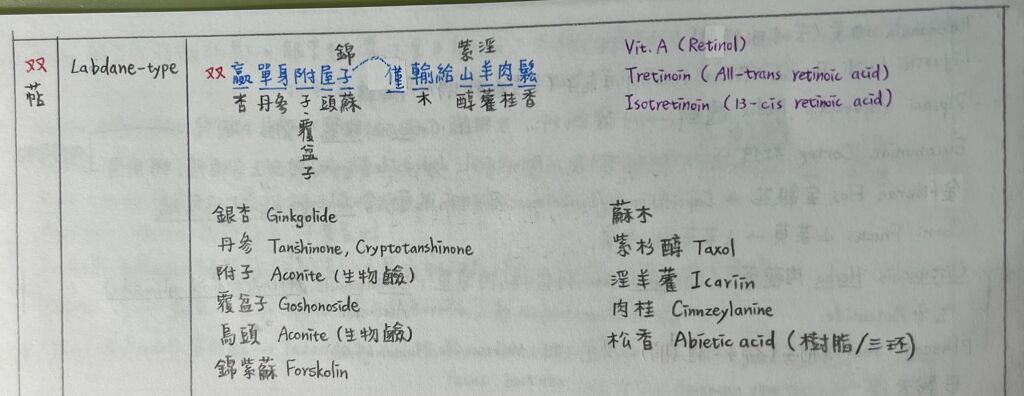 双萜
Labdane-type
錦 紫淫
双 贏單身附屋子 僅輸給山羊肉鬆
杏 丹參 子 頭 蘇 木 醇 藿 桂 香
覆盆子
Vit. A (Retinol)
Tretinoin (All-trans retinoic acid)
Isotretinoin (13-cis retinoic acid)
銀杏 Ginkgolide
丹參 Tanshinone, Cryptotanshinone
附子 Aconite (生物鹼)
覆盆子 Goshonoside
烏頭 Aconite (生物鹼)
錦紫蘇 Forskolin
蘇木
紫杉醇 Taxol
淫羊藿 Icariin
肉桂 Cinnzeylanine
松香 Abietic acid (樹脂/三环)